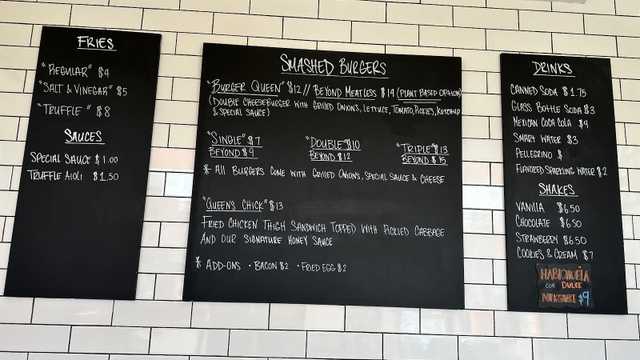 FRIES
"REGULAR" $4
"SALT & VINEGAR" $5
"TRUFFLE" $8
SAUCES
SPECIAL SAUCE $1.00
TRUFFLE AIOLI $1.50
SMASHED BURGERS
"BURGER QUEEN" $12 // BEYOND MEATLESS $14 (PLANT BASED OPTION)
(DOUBLE CHEESEBURGER WITH GRILLED ONIONS, LETTUCE, TOMATO, PICKLES, KETCHUP
& SPECIAL SAUCE)
"SINGLE" $7 "DOUBLE" $10 "TRIPLE" $13
BEYOND $9 BEYOND $12 BEYOND $15
* ALL BURGERS COME WITH GRILLED ONIONS, SPECIAL SAUCE & CHEESE
"QUEEN'S CHICK" $13
FRIED CHICKEN THIGH SANDWICH TOPPED WITH PICKLED CABBAGE
AND OUR SIGNATURE HONEY SAUCE
* ADD-ONS • BACON $2 • FRIED EGG $2
DRINKS
CANNED SODA $1.75
GLASS BOTTLE SODA $3
MEXICAN COCA COLA $4
SMART WATER $3
PELLEGRINO $
FLAVORED SPARKLING WATER $2
SHAKES
VANILLA $6.50
CHOCOLATE $6.50
STRAWBERRY $6.50
COOKIES & CREAM $7
HABICHUELA
CON DULCE
MILKSHAKE $9